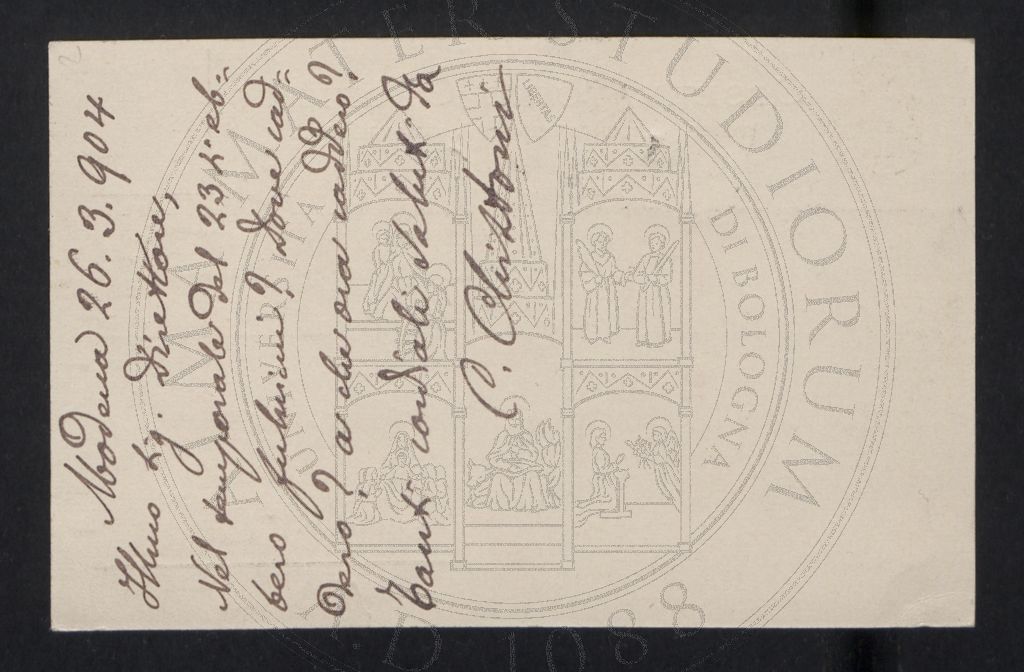 Modena 26. 3. 904
Illmo Sig. Direttore,
Nel temporale del 23 si eb=
bero fulmini? Dove cad=
dero? a che ora caddero?
Tanti cordiali saluti da
C. Chistoni
ALMA MATER STUDIORUM
A.D. 1088
UNIVERSITÀ DI BOLOGNA
LIBERTAS